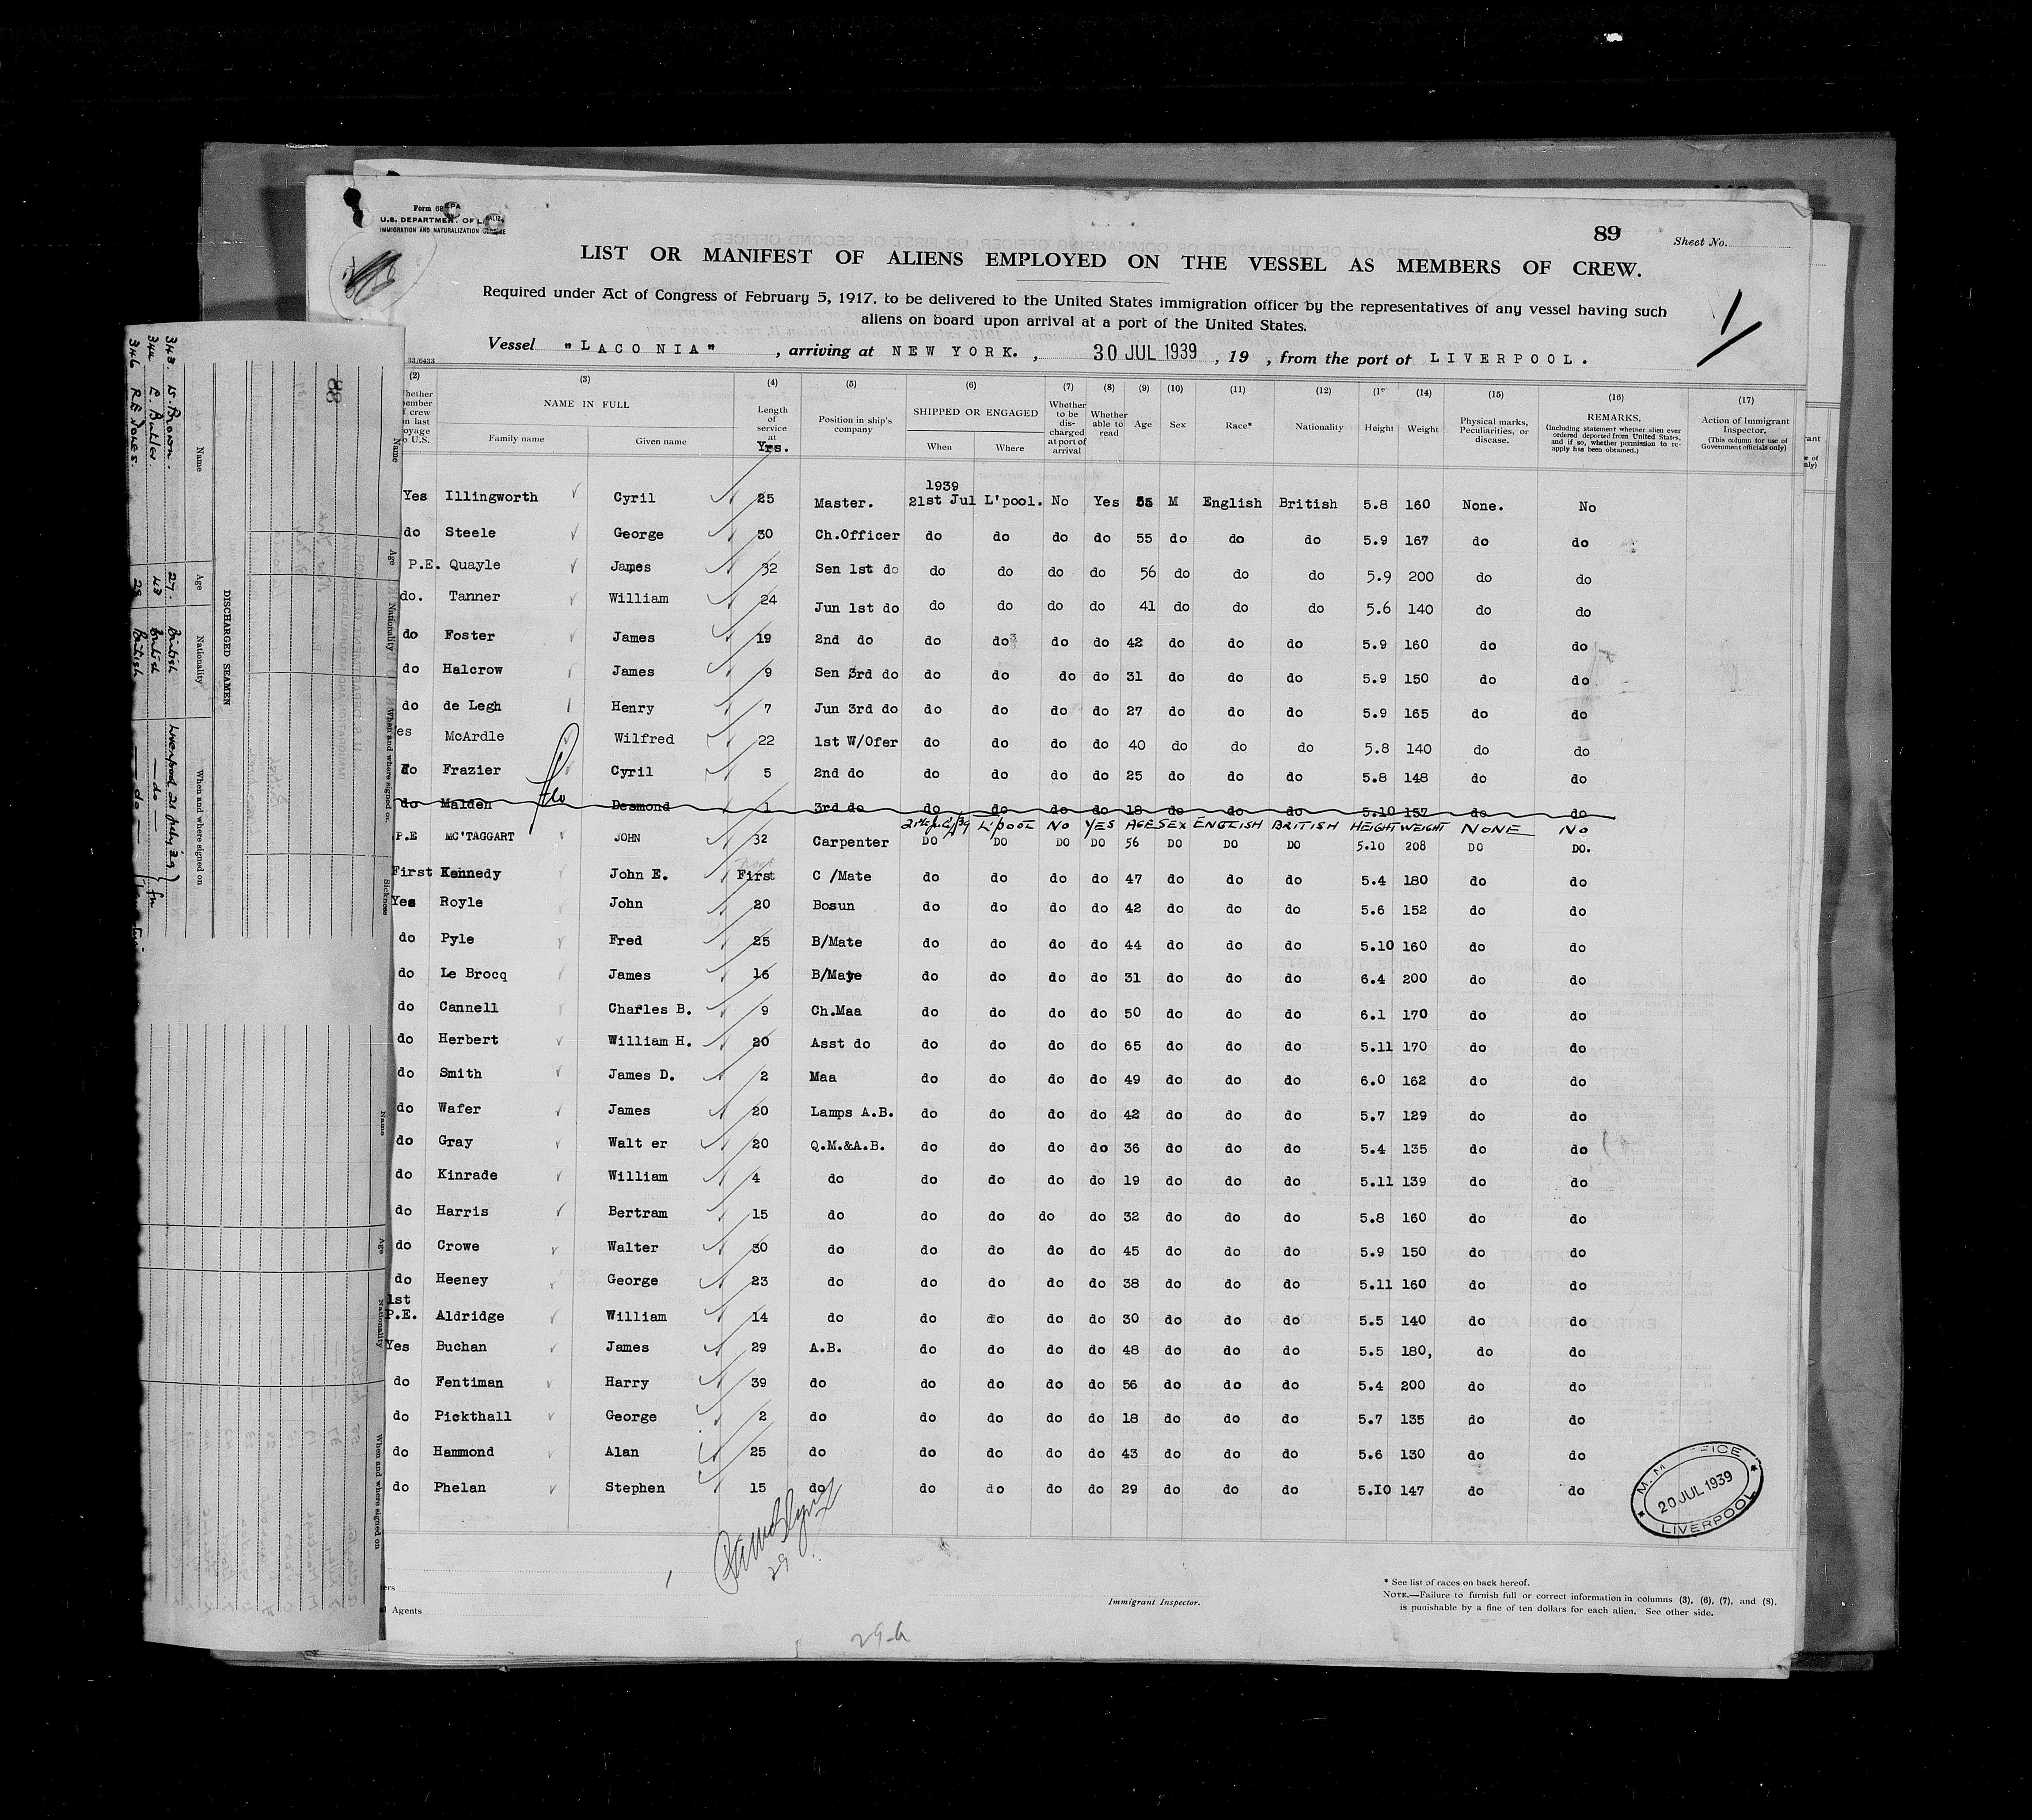 Form 68
U.S. DEPARTMENT OF L
IMMIGRATION AND NATURALIZATION
89
Sheet No.
LIST OR MANIFEST OF ALIENS EMPLOYED ON THE VESSEL AS MEMBERS OF CREW.
Required under Act of Congress of February 5, 1917, to be delivered to the United States immigration officer by the representatives of any vessel having such
aliens on board upon arrival at a port of the United States.
Vessel "LACONIA", arriving at NEW YORK., 30 JUL 1939, 19 , from the port of LIVERPOOL.
(2) (3) (4) (5) (6) (7) (8) (9) (10) (11) (12) (14) (15) (16) (17)
NAME IN FULL
Family name Given name
Length of service at Yrs.
Position in ship's company
SHIPPED OR ENGAGED
When Where
Whether to be discharged at port of arrival
Whether able to read
Age Sex Race* Nationality Height Weight
Physical marks, Peculiarities, or disease.
REMARKS.
(Including statement whether alien ever ordered deported from United States, and if so, whether permission to reapply has been obtained.)
Action of Immigrant Inspector.
(This column for use of Government officials only)
1939
Yes Illingworth Cyril 25 Master. 21st Jul L'pool. No Yes 55 M English British 5.8 160 None. No
do Steele George 30 Ch.Officer do do do do 55 do do do 5.9 167 do do
P.E. Quayle James 32 Sen 1st do do do do do 56 do do do 5.9 200 do do
do. Tanner William 24 Jun 1st do do do do do 41 do do do 5.6 140 do do
do Foster James 19 2nd do do do do do 42 do do do 5.9 160 do do
do Halcrow James 9 Sen 3rd do do do do do 31 do do do 5.9 150 do do
do de Legh Henry 7 Jun 3rd do do do do do 27 do do do 5.9 165 do do
es McArdle Wilfred 22 1st W/Ofer do do do do 40 do do do 5.8 140 do do
do Frazier Cyril 5 2nd do do do do do 25 do do do 5.8 148 do do
do Malden Desmond 1 3rd do do do do do 18 do do do 5.10 157 do do
L'POOL NO YES AGE SEX ENGLISH BRITISH HEIGHT WEIGHT NONE NO
P.E MC'TAGGART JOHN 32 Carpenter DO DO DO DO 56 DO DO DO 5.10 208 DO DO.
First Kennedy John E. First C /Mate do do do do 47 do do do 5.4 180 do do
Yes Royle John 20 Bosun do do do do 42 do do do 5.6 152 do do
do Pyle Fred 25 B/Mate do do do do 44 do do do 5.10 160 do do
do Le Brocq James 16 B/Maye do do do do 31 do do do 6.4 200 do do
do Cannell Charles B. 9 Ch.Maa do do do do 50 do do do 6.1 170 do do
do Herbert William H. 20 Asst do do do do do 65 do do do 5.11 170 do do
do Smith James D. 2 Maa do do do do 49 do do do 6.0 162 do do
do Wafer James 20 Lamps A.B. do do do do 42 do do do 5.7 129 do do
do Gray Walt er 20 Q.M.&A.B. do do do do 36 do do do 5.4 135 do do
do Kinrade William 4 do do do do do 19 do do do 5.11 139 do do
do Harris Bertram 15 do do do do do 32 do do do 5.8 160 do do
do Crowe Walter 30 do do do do do 45 do do do 5.9 150 do do
do Heeney George 23 do do do do do 38 do do do 5.11 160 do do
1st
P.E. Aldridge William 14 do do do do do 30 do do do 5.5 140 do do
Yes Buchan James 29 A.B. do do do do 48 do do do 5.5 180, do do
do Fentiman Harry 39 do do do do do 56 do do do 5.4 200 do do
do Pickthall George 2 do do do do do 18 do do do 5.7 135 do do
do Hammond Alan 25 do do do do do 43 do do do 5.6 130 do do
do Phelan Stephen 15 do do do do do 29 do do do 5.10 147 do do
20 JUL 1939
LIVERPOOL
Immigrant Inspector.
* See list of races on back hereof.
NOTE.—Failure to furnish full or correct information in columns (3), (6), (7), and (8),
is punishable by a fine of ten dollars for each alien. See other side.
Agents
88
DISCHARGED SEAMEN
Name Age Nationality When and where signed on
343 Brown. 27. British Liverpool 21 July 39
344 43 British do
346 R.E. Jones. British do
Name Age Nationality When and where signed on. Sickness
Name Age Nationality When and where signed on